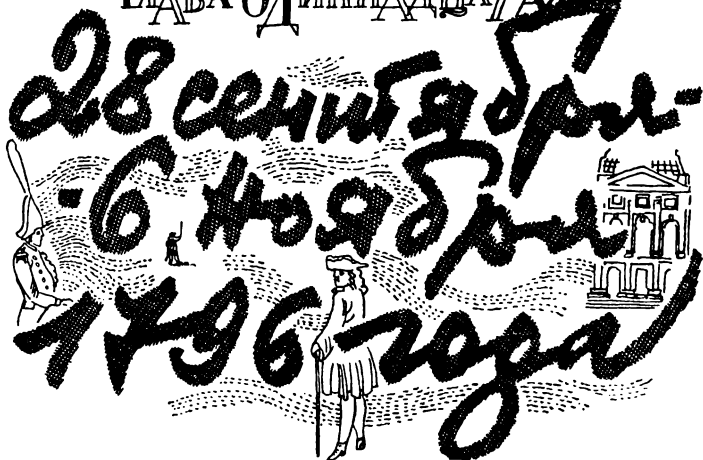 ГЛАВА ОДИННАДЦАТАЯ
28 сентября-
-6 ноября
1796 года